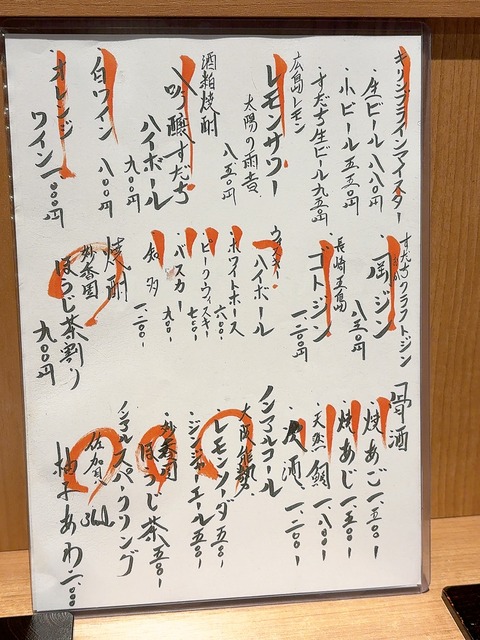 キリンブラウマイスター
・生ビール 八八〇円
・小ビール 五五〇円
・すだち生ビール 九五〇円
広島レモン
・レモンサワー
八五〇円
酒粕焼酎
・吟醸すだち
ハイボール
九〇〇円
・白ワイン 八〇〇円
・オレンジ
ワイン 一、〇〇〇円
すだちクラフトジン
・岡ジン
八五〇円
長崎五島
・ゴトジン
一、二〇〇円
ウイスキー
ハイボール
・ホワイトホース
六〇〇-
・ピークウィスキー
七〇〇-
・バスカー
九〇〇-
・知多
一、二〇〇-
焼酎
妙香園
ほうじ茶割り
九〇〇円
骨酒
・焼あご 一、五〇〇-
・焼あじ 一、五〇〇-
・天然鯛 一、八〇〇-
一、二〇〇-
ノンアルコール
大阪能勢
・レモンソーダ 五〇〇-
・ジンジャーエール 五〇〇-
・妙香園
ほうじ茶 五〇〇-
ノンアルスパークリング
佐賀
柚子あわ 二、〇〇〇